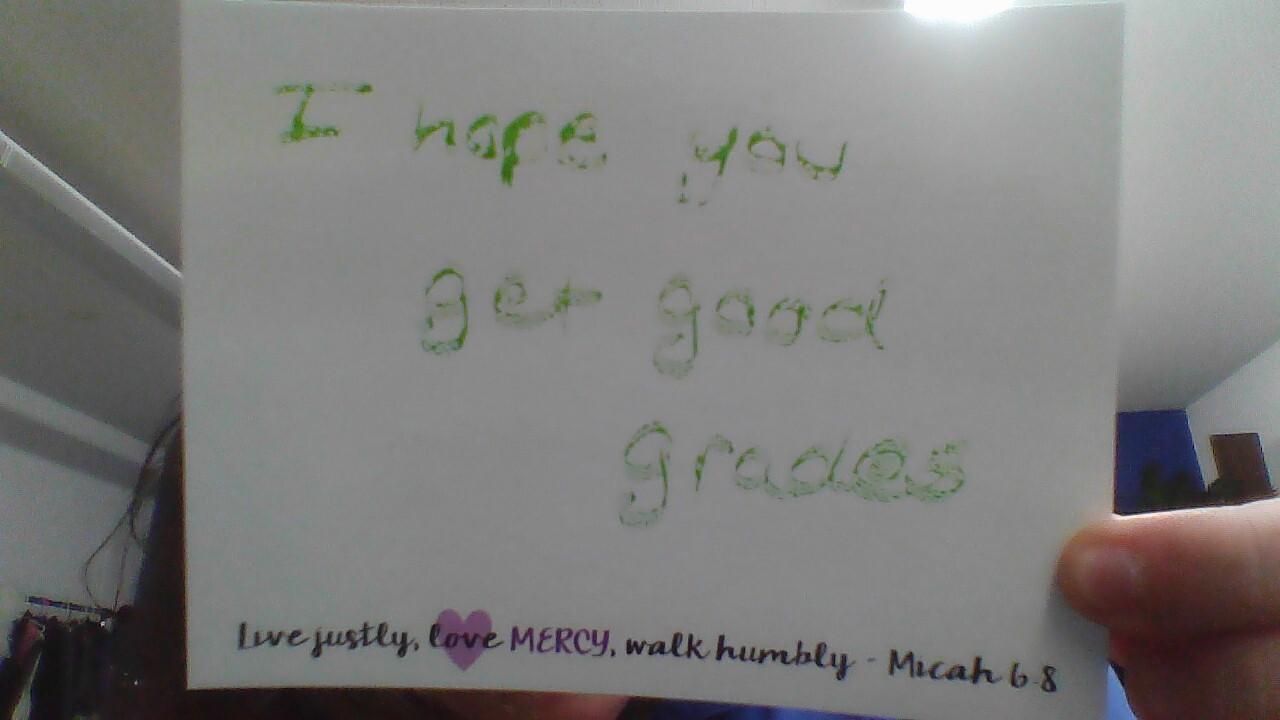 I hope you
get good
grades
Live justly, love MERCY, walk humbly - Micah 6:8